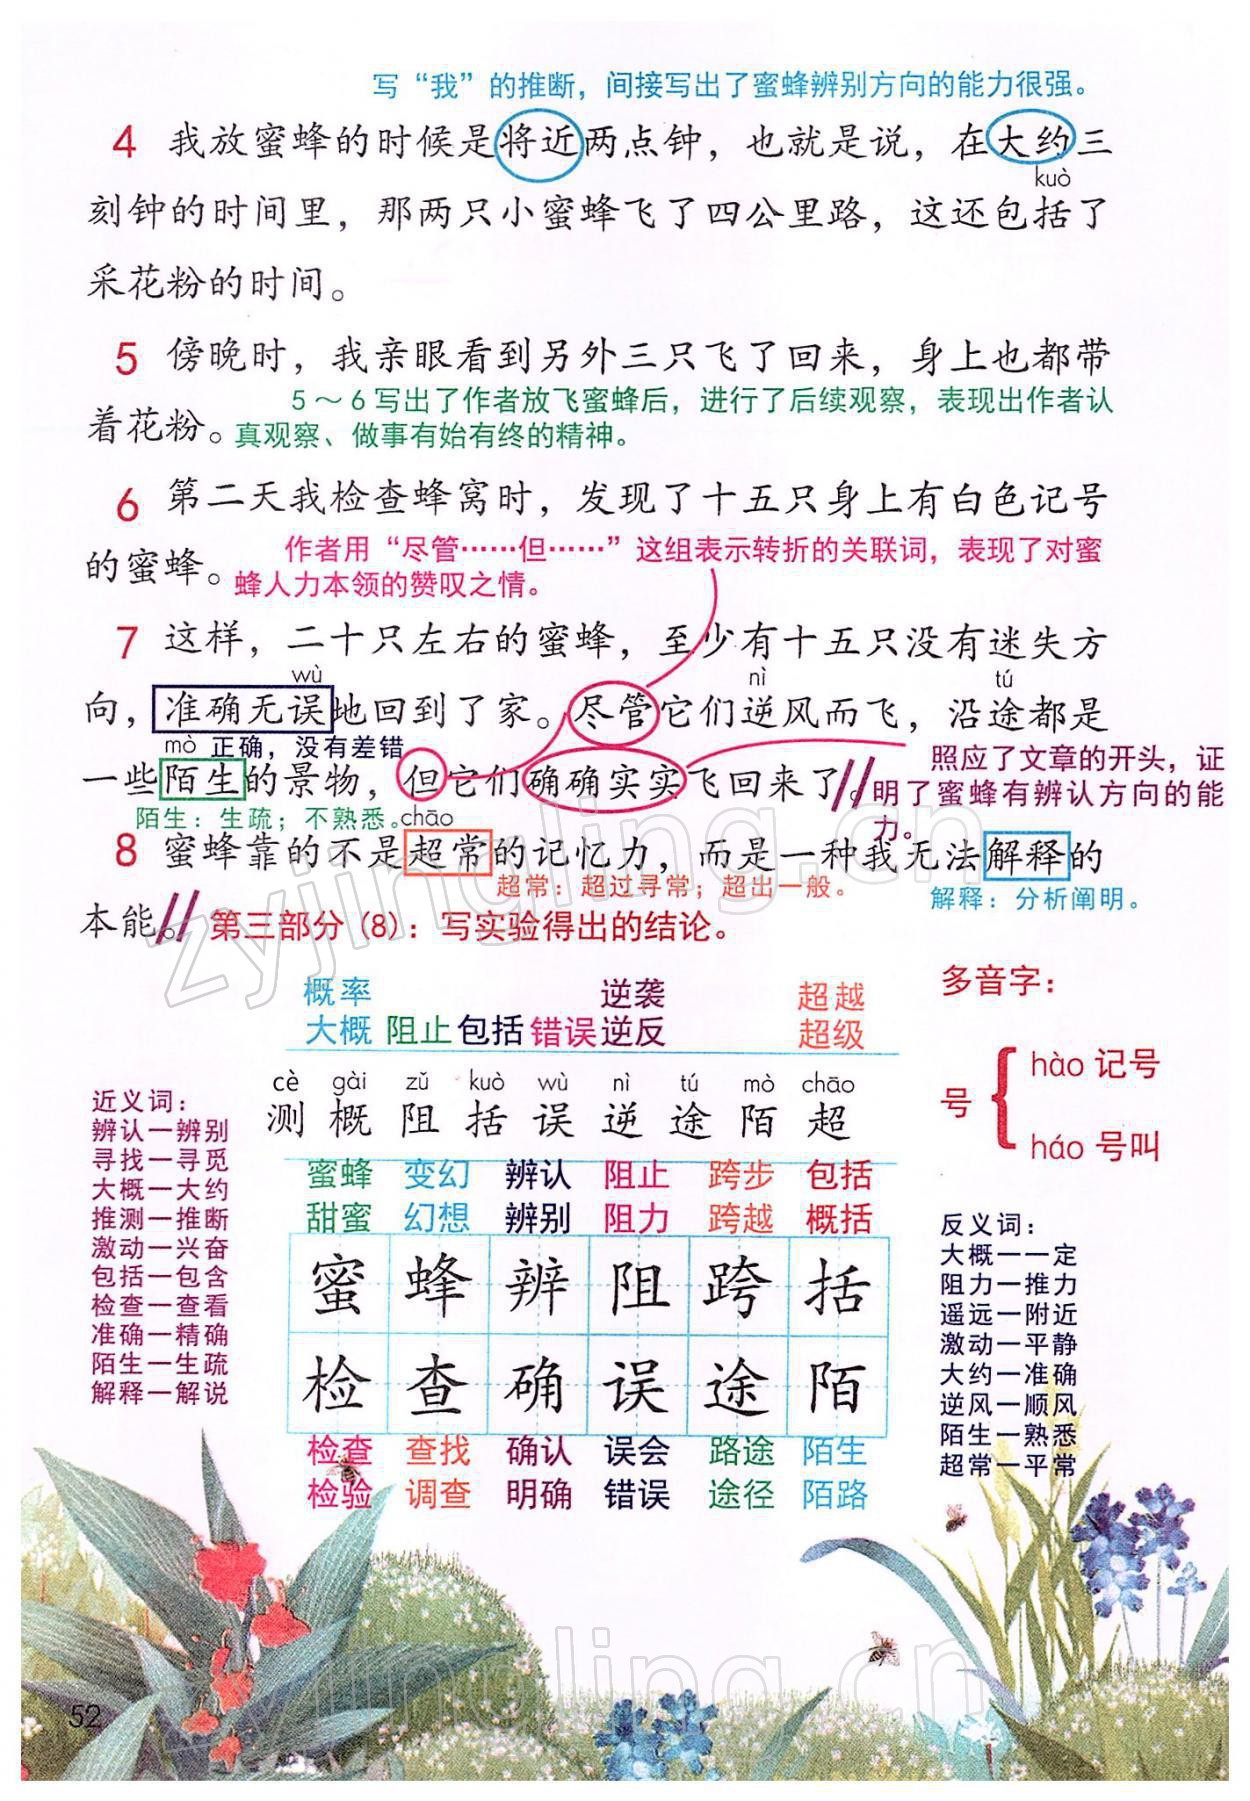 写“我”的推断，间接写出了蜜蜂辨别方向的能力很强。
4 我放蜜蜂的时候是将近两点钟，也就是说，在大约三
kuò
刻钟的时间里，那两只小蜜蜂飞了四公里路，这还包括了
采花粉的时间。
5 傍晚时，我亲眼看到另外三只飞了回来，身上也都带
5～6写出了作者放飞蜜蜂后，进行了后续观察，表现出作者认
着花粉。真观察、做事有始有终的精神。
6 第二天我检查蜂窝时，发现了十五只身上有白色记号
作者用“尽管……但……”这组表示转折的关联词，表现了对蜜
的蜜蜂。蜂人力本领的赞叹之情。
7 这样，二十只左右的蜜蜂，至少有十五只没有迷失方
wù nì tú
向，准确无误地回到了家。尽管它们逆风而飞，沿途都是
mò 正确，没有差错
一些陌生的景物，但它们确确实实飞回来了。
照应了文章的开头，证
明了蜜蜂有辨认方向的能
力。
陌生：生疏；不熟悉。chāo
8 蜜蜂靠的不是超常的记忆力，而是一种我无法解释的
超常：超过寻常；超出一般。 解释：分析阐明。
本能。第三部分（8）：写实验得出的结论。
概率 逆袭 超越
大概 阻止 包括 错误 逆反 超级
cè gài zǔ kuò wù nì tú mò chāo
测 概 阻 括 误 逆 途 陌 超
多音字：
号
hào 记号
háo 号叫
近义词：
辨认—辨别
寻找—寻觅
大概—大约
推测—推断
激动—兴奋
包括—包含
检查—查看
准确—精确
陌生—生疏
解释—解说
蜜蜂 变幻 辨认 阻止 跨步 包括
甜蜜 幻想 辨别 阻力 跨越 概括
蜜 蜂 辨 阻 跨 括
检 查 确 误 途 陌
检查 查找 确认 误会 路途 陌生
检验 调查 明确 错误 途径 陌路
反义词：
大概—一定
阻力—推力
遥远—附近
激动—平静
大约—准确
逆风—顺风
陌生—熟悉
超常—平常
52
zyjingling.cn
zyjingling.cn